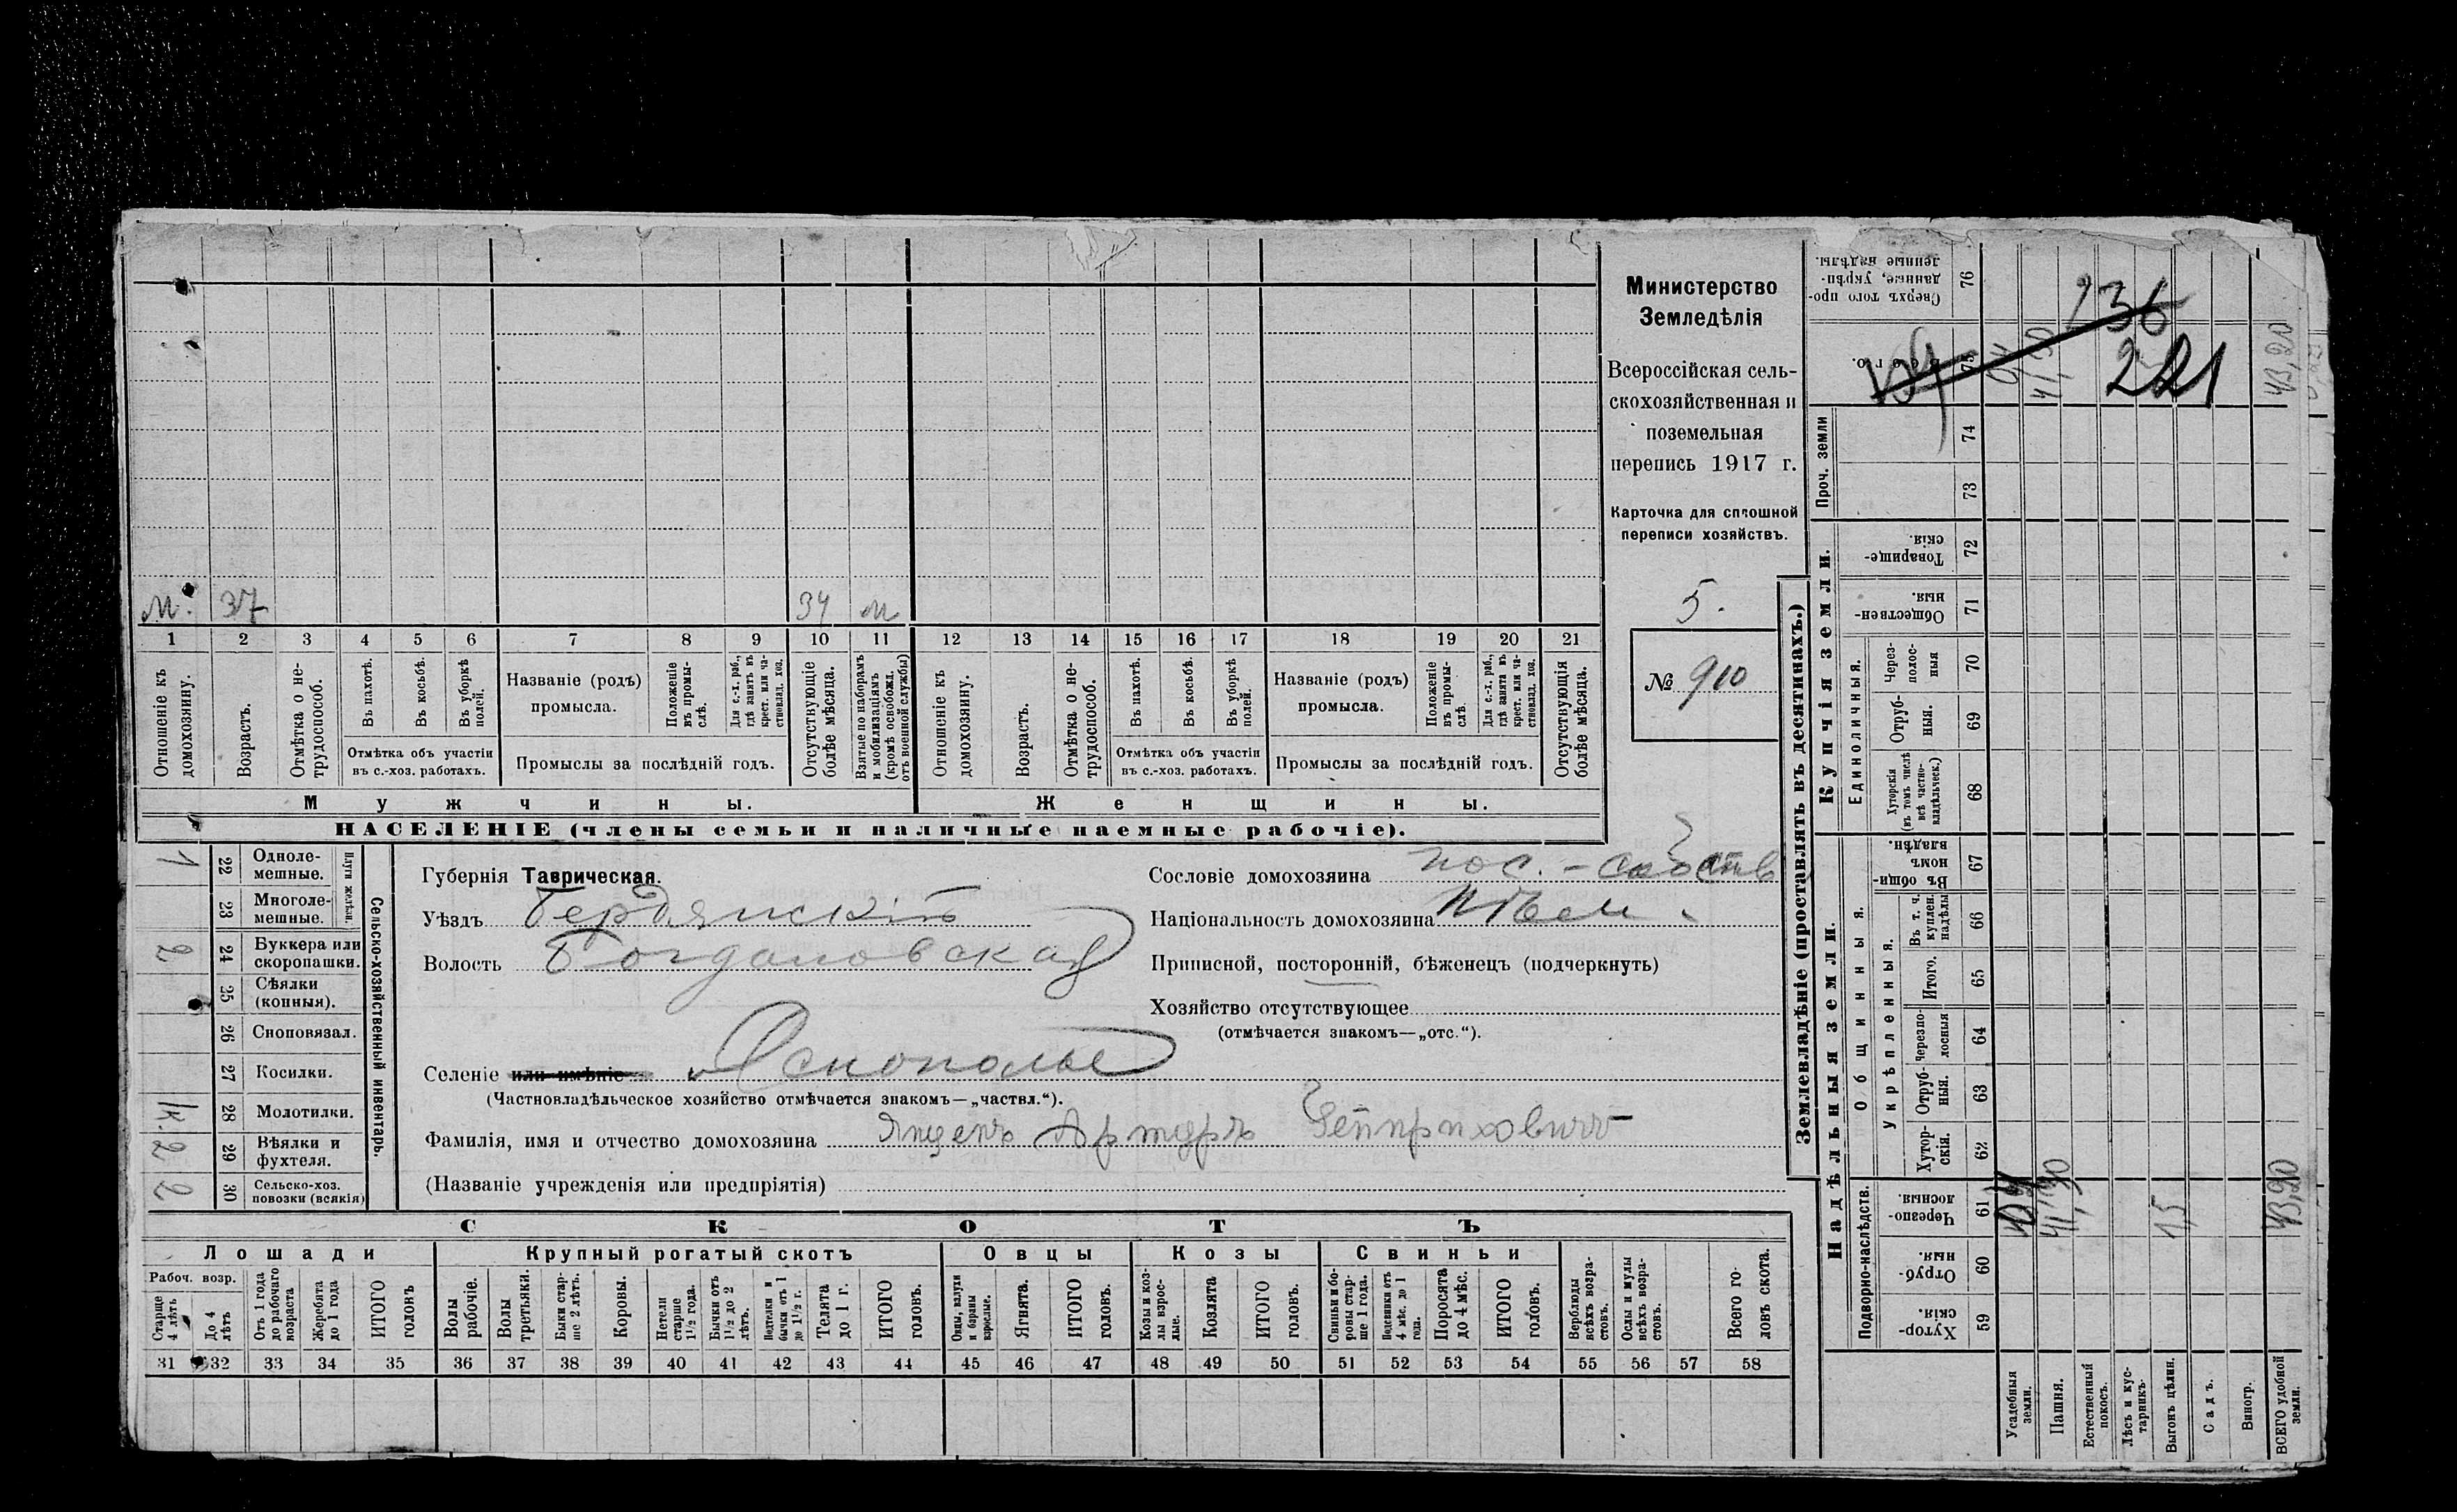 Министерство
Земледѣлія
Всероссійская сель-
скохозяйственная и
поземельная
перепись 1917 г.
Карточка для сплошной
переписи хозяйствъ.
5.
№ 910
м. 37 34 м
1 2 3 4 5 6 7 8 9 10 11 12 13 14 15 16 17 18 19 20 21
Отношеніе къ домохозяину.
Возрастъ.
Отмѣтка о не-трудоспособ.
Въ пахотѣ.
Въ косьбѣ.
Въ уборкѣ полей.
Отмѣтка объ участіи
въ с.-хоз. работахъ.
Названіе (родъ)
промысла.
Положеніе въ промы-слѣ.
Для с.-х. раб., гдѣ занятъ въ крест. или ча-стновлад. хоз.
Промыслы за послѣдній годъ.
Отсутствующіе болѣе мѣсяца.
Взятые по наборамъ и мобилизаціямъ (кромѣ освобожд. отъ военной службы)
Отношеніе къ домохозяину.
Возрастъ.
Отмѣтка о не-трудоспособ.
Въ пахотѣ.
Въ косьбѣ.
Въ уборкѣ полей.
Отмѣтка объ участіи
въ с.-хоз. работахъ.
Названіе (родъ)
промысла.
Положеніе въ промы-слѣ.
Для с.-х. раб., гдѣ занята въ крест. или ча-стновлад. хоз.
Промыслы за послѣдній годъ.
Отсутствующія болѣе мѣсяца.
Мужчины. Женщины.
НАСЕЛЕНІЕ (члены семьи и наличные наемные рабочіе).
Сельско-хозяйственный инвентарь.
Плуги желѣзн.
1 22 Одноле-мешные.
23 Многоле-мешные.
2 24 Буккера или скоропашки.
25 Сѣялки (конныя).
26 Сноповязал.
27 Косилки.
1к. 28 Молотилки.
2 29 Вѣялки и фухтеля.
2 30 Сельско-хоз. повозки (всякія)
Губернія Таврическая.
Уѣздъ Бердянскій
Волость Богдановская
Селеніе или имѣніе Яснополье
(Частновладѣльческое хозяйство отмѣчается знакомъ—„частвл.“).
Фамилія, имя и отчество домохозяина Янценъ Артуръ Гейнриховичъ
(Названіе учрежденія или предпріятія)
Сословіе домохозяина пос. - собств
Національность домохозяина нѣм.
Приписной, посторонній, бѣженецъ (подчеркнуть)
Хозяйство отсутствующее
(отмѣчается знакомъ—„отс.“).
СКОТЪ
Лошади Крупный рогатый скотъ Овцы Козы Свиньи
Рабоч. возр.
Старше 4 лѣтъ
До 4 лѣтъ
Отъ 1 года до рабочаго возраста
Жеребята до 1 года
ИТОГО головъ
Волы рабочіе.
Волы третьяки.
Быки стар-ше 2 лѣтъ.
Коровы.
Нетели старше 1½ года.
Бычки отъ 1½ до 2 лѣтъ.
Подтелки и бычки отъ 1 до 1½ г.
Телята до 1 г.
ИТОГО головъ.
Овцы, валухи и бараны взрослые.
Ягнята.
ИТОГО головъ.
Козы и коз-лы взрос-лые.
Козлята
ИТОГО головъ.
Свиньи и бо-ровы стар-ше 1 года.
Подсвинки отъ 4 мѣс. до 1 года.
Поросята до 4 мѣс.
ИТОГО головъ.
Верблюды всѣхъ возра-стовъ.
Ослы и мулы всѣхъ возра-стовъ.
Всего го-ловъ скота.
31 32 33 34 35 36 37 38 39 40 41 42 43 44 45 46 47 48 49 50 51 52 53 54 55 56 57 58
Землевладѣніе (проставлять въ десятинахъ.)
Надѣльныя земли. Купчія земли. Проч. земли
Подворно-наслѣдств.
Общинныя.
Укрѣпленныя.
Единоличныя.
Сверхъ того про-данные, укрѣп-ленные надѣлы. 76
Всего. 75
74
73
Товарище-скія. 72
Обществен-ныя. 71
Через-полос-ныя 70
Отруб-ныя. 69
Хуторскія (въ томъ числѣ всѣ частно-владѣльческ.) 68
Въ общи-номъ владѣн. 67
Въ т. ч. куплен. надѣлы 66
Итого. 65
Черезпо-лосныя 64
Отруб-ныя. 63
Хутор-скія. 62
Черезпо-лосныя. 61
Отруб-ныя. 60
Хутор-скія. 59
236
221
41,30
43,20
41,30
1,5
43,20
Усадебныя земли.
Пашня.
Естественный покосъ.
Лѣсъ и кус-тарникъ
Выгонъ цѣлин.
Садъ.
Виногр.
ВСЕГО удобной земли.